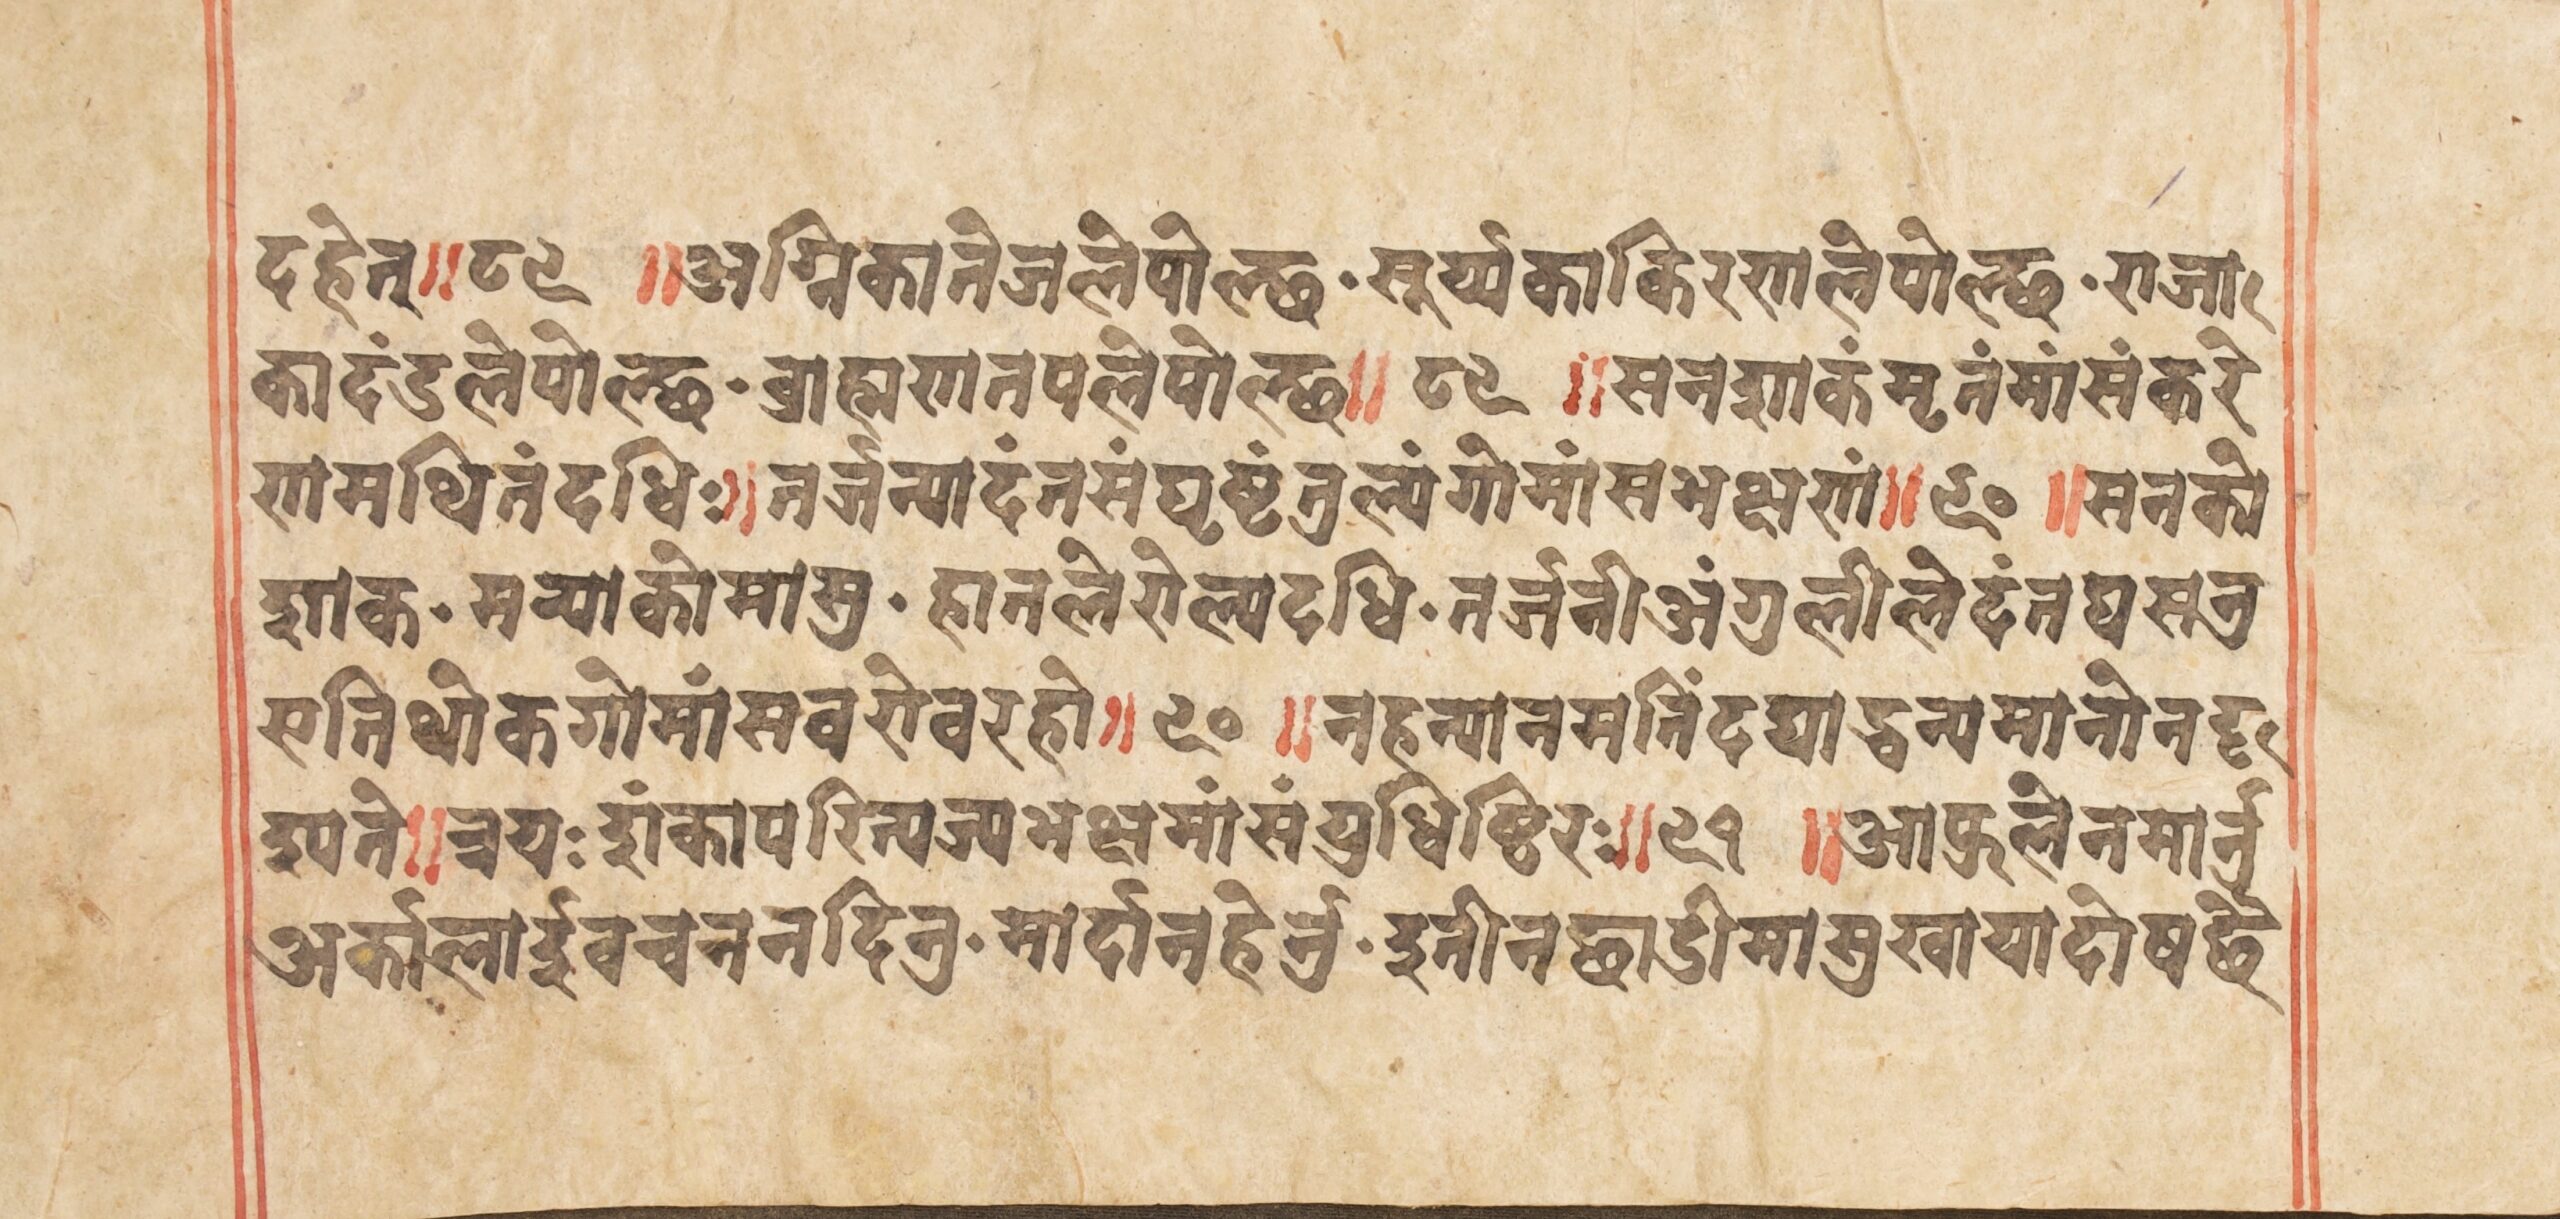 दहेत्॥८९ ॥अग्निकातेजलेपोल्छ·सूर्य्यकाकिरणलेपोल्छ·राजा
कादंडलेपोल्छ·ब्राह्मणतपलेपोल्छ॥ ८९ ॥सनशाकंमृतंमांसंकरे
णमथितंदधिः॥तर्जन्यादंतसंघृष्टंतुल्यंगोमांसभक्षणं॥९० ॥सनको
शाक·मर्‍याकोमासु·हातलेरोल्यदधि·तर्जनीअंगुलीलेदंतघसनु
सतिथोकगोमांसवरोवरहो॥९० ॥नहन्यानमतिंदद्याद्धन्यमानोनदृ
श्यते॥त्रयःशंकापरित्यज्यभक्षमांसंयुधिष्ठिरः॥९१ ॥आफूलेनमार्नु
अर्कालाईवचननदिनु·मार्दानहेर्नु·इतीनछाडीमासुखायादोषछै